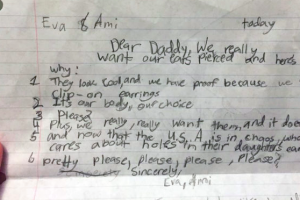 Eva & Ami today
Dear Daddy, We really
want our ears pierced and here's
why:
1 They look Good, and we have proof because we
clip-on earrings
2 It's our body, our choice
3 Please?
4 Plus, we really, really want them, and it doe
5 and now that the U.S.A. is in chaos, who
cares about holes in their daughters ear
6 pretty please, please, please, please?
Sincerely,
Eva, Ami